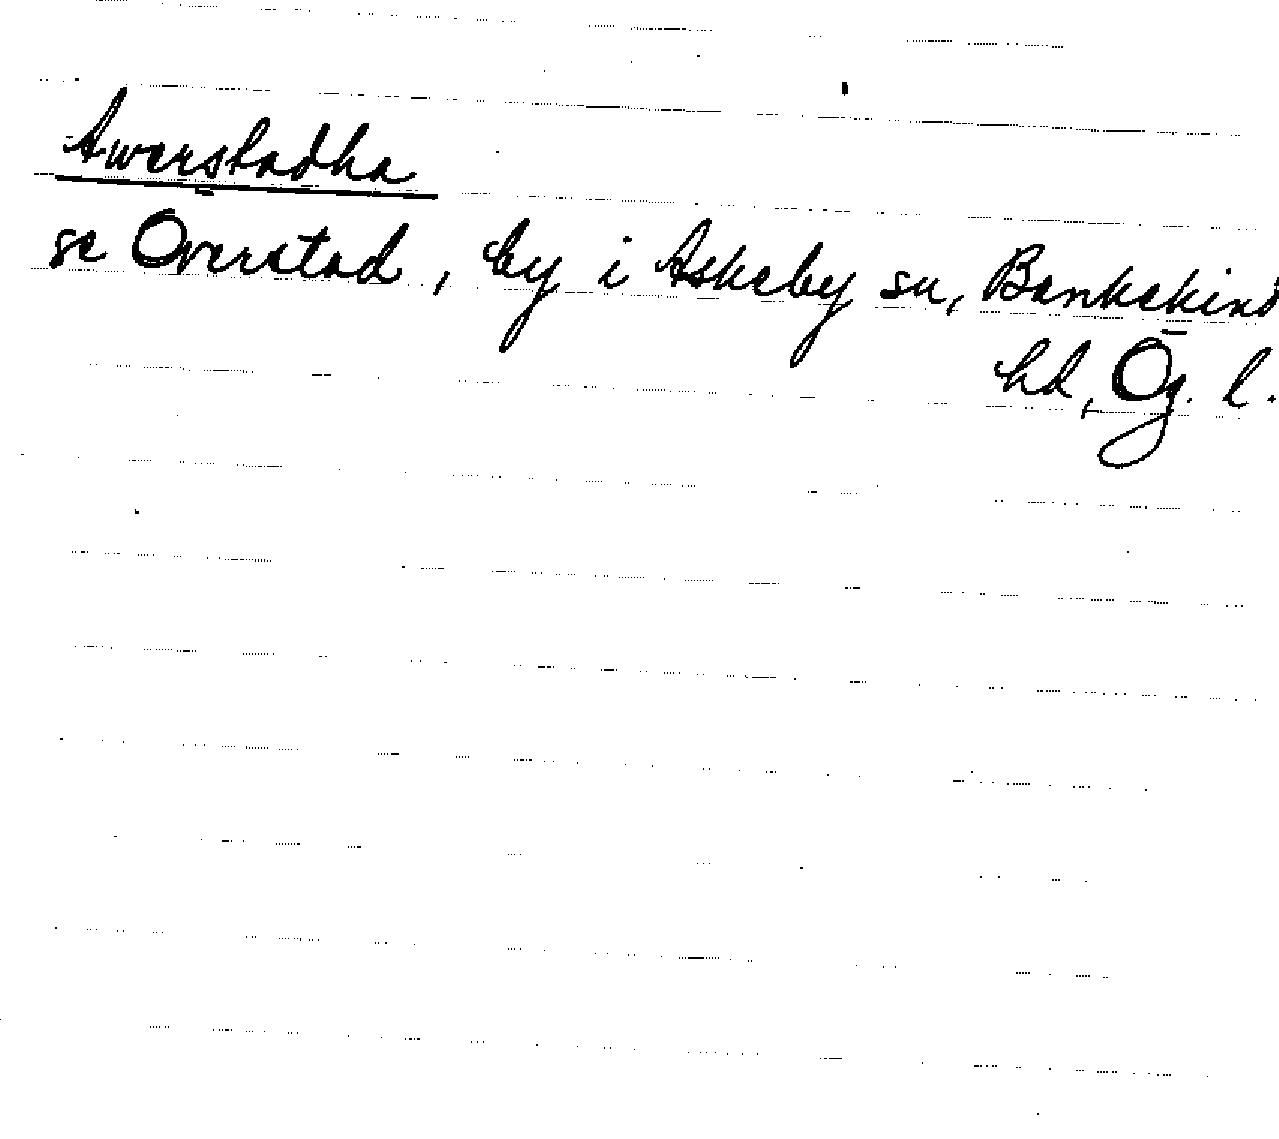 Awerstadha
se Överstad, by i Askeby sn, Bankekind
hd, Ög. l.